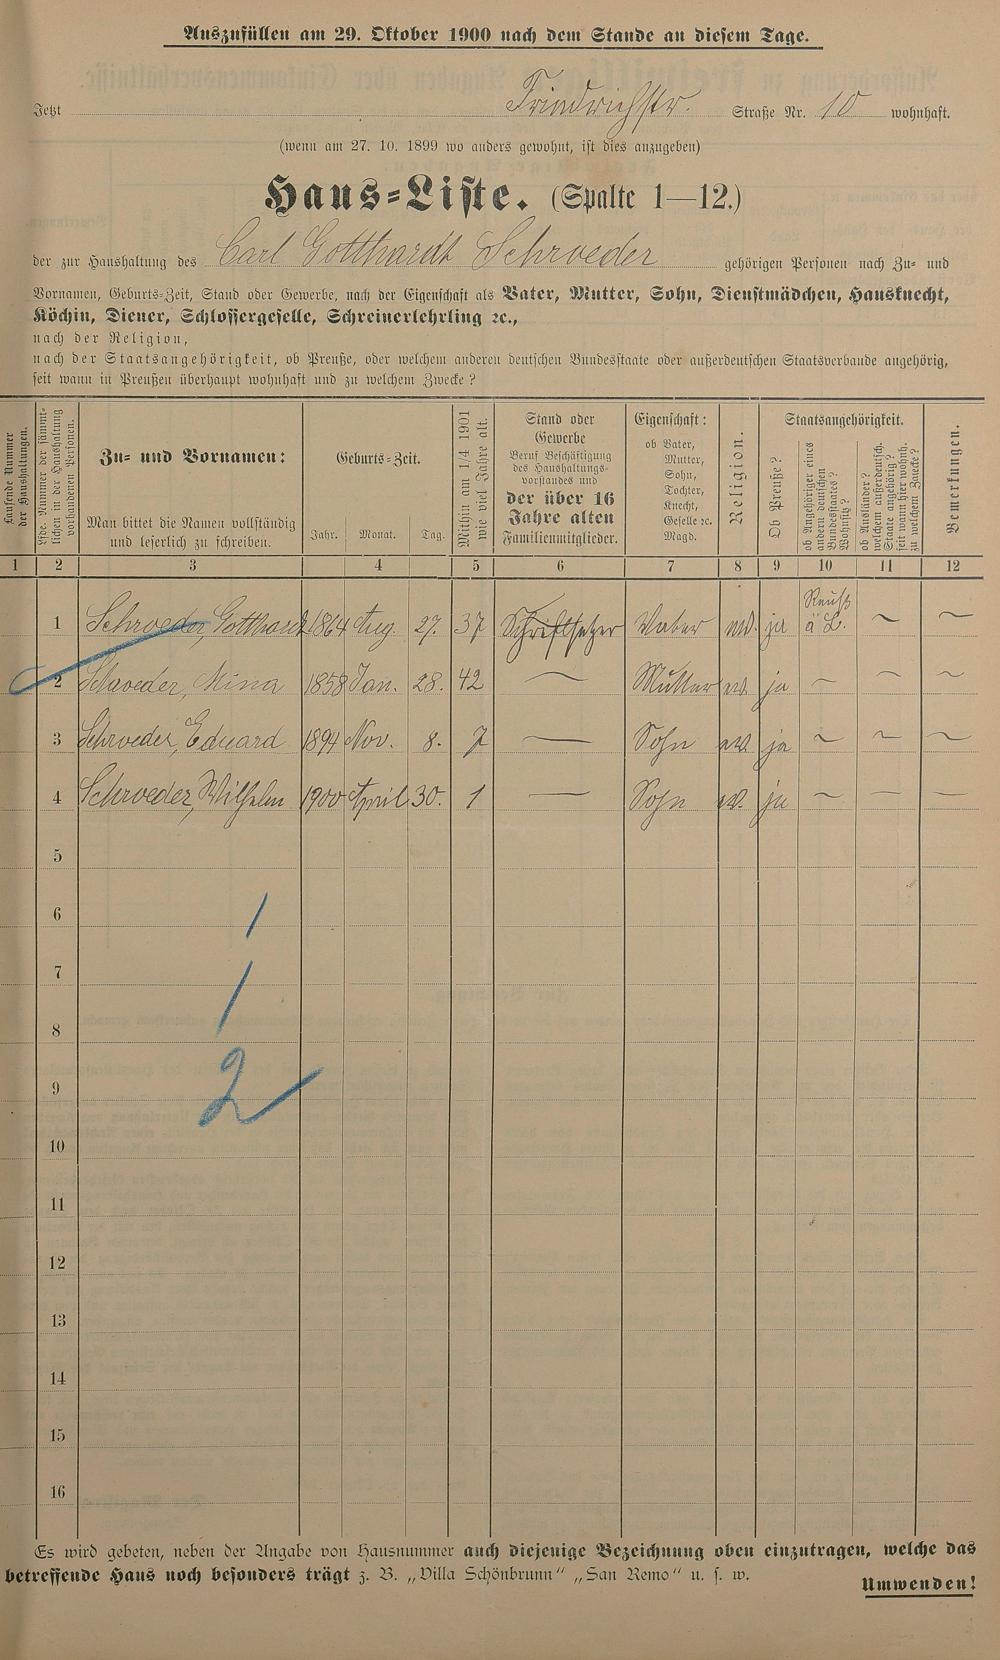 Auszufüllen am 29. Oktober 1900 nach dem Stande an diesem Tage.
Jetzt Friedrichstr. Straße Nr. 10 wohnhaft.
(wenn am 27. 10. 1899 wo anders gewohnt, ist dies anzugeben)
Haus=Liste. (Spalte 1—12.)
der zur Haushaltung des Carl Gotthardt Schroeder gehörigen Personen nach Zu= und
Vornamen, Geburts=Zeit, Stand oder Gewerbe, nach der Eigenschaft als Vater, Mutter, Sohn, Dienstmädchen, Hausknecht,
Köchin, Diener, Schlossergeselle, Schreinerlehrling ꝛc.,
nach der Religion,
nach der Staatsangehörigkeit, ob Preuße, oder welchem anderen deutschen Bundesstaate oder außerdeutschen Staatsverbande angehörig,
seit wann in Preußen überhaupt wohnhaft und zu welchem Zwecke?
Laufende Nummer
der Haushaltungen.
Lfde. Nummer der sämmt=
lichen in der Haushaltung
vorhandenen Personen.
Zu= und Vornamen:
Man bittet die Namen vollständig
und leserlich zu schreiben.
Geburts=Zeit.
Jahr. Monat. Tag.
Mithin am 1/4 1901
wie viel Jahre alt.
Stand oder
Gewerbe
Beruf Beschäftigung
des Haushaltungs=
vorstandes und
der über 16
Jahre alten
Familienmitglieder.
Eigenschaft:
ob Vater,
Mutter,
Sohn,
Tochter,
Knecht,
Geselle ꝛc.
Magd.
Religion.
Staatsangehörigkeit.
Ob Preuße?
ob Angehöriger eines
andern deutschen
Bundesstaates?
Wohnsitz?
ob Ausländer?
welchem außerdeutsch.
Staate angehörig?
seit wann hier wohnh.
zu welchem Zwecke?
Bemerkungen.
1 2 3 4 5 6 7 8 9 10 11 12
1 Schroeder, Gotthardt 1864 Aug. 27. 37 Schriftsetzer Vater ev. ja Reuß ä L. — —
2 Schroeder, Mina 1858 Jan. 28. 42 — Mutter ev. ja — — —
3 Schroeder, Eduard 1894 Nov. 8. 7 — Sohn ev. ja — — —
4 Schroeder, Wilhelm 1900 April 30. 1 — Sohn ev. ja — — —
5
6
7
8
9
10
11
12
13
14
15
16
1
1
2
Es wird gebeten, neben der Angabe von Hausnummer auch diejenige Bezeichnung oben einzutragen, welche das
betreffende Haus noch besonders trägt z. B. „Villa Schönbrunn" „San Remo" u. s. w.
Umwenden!